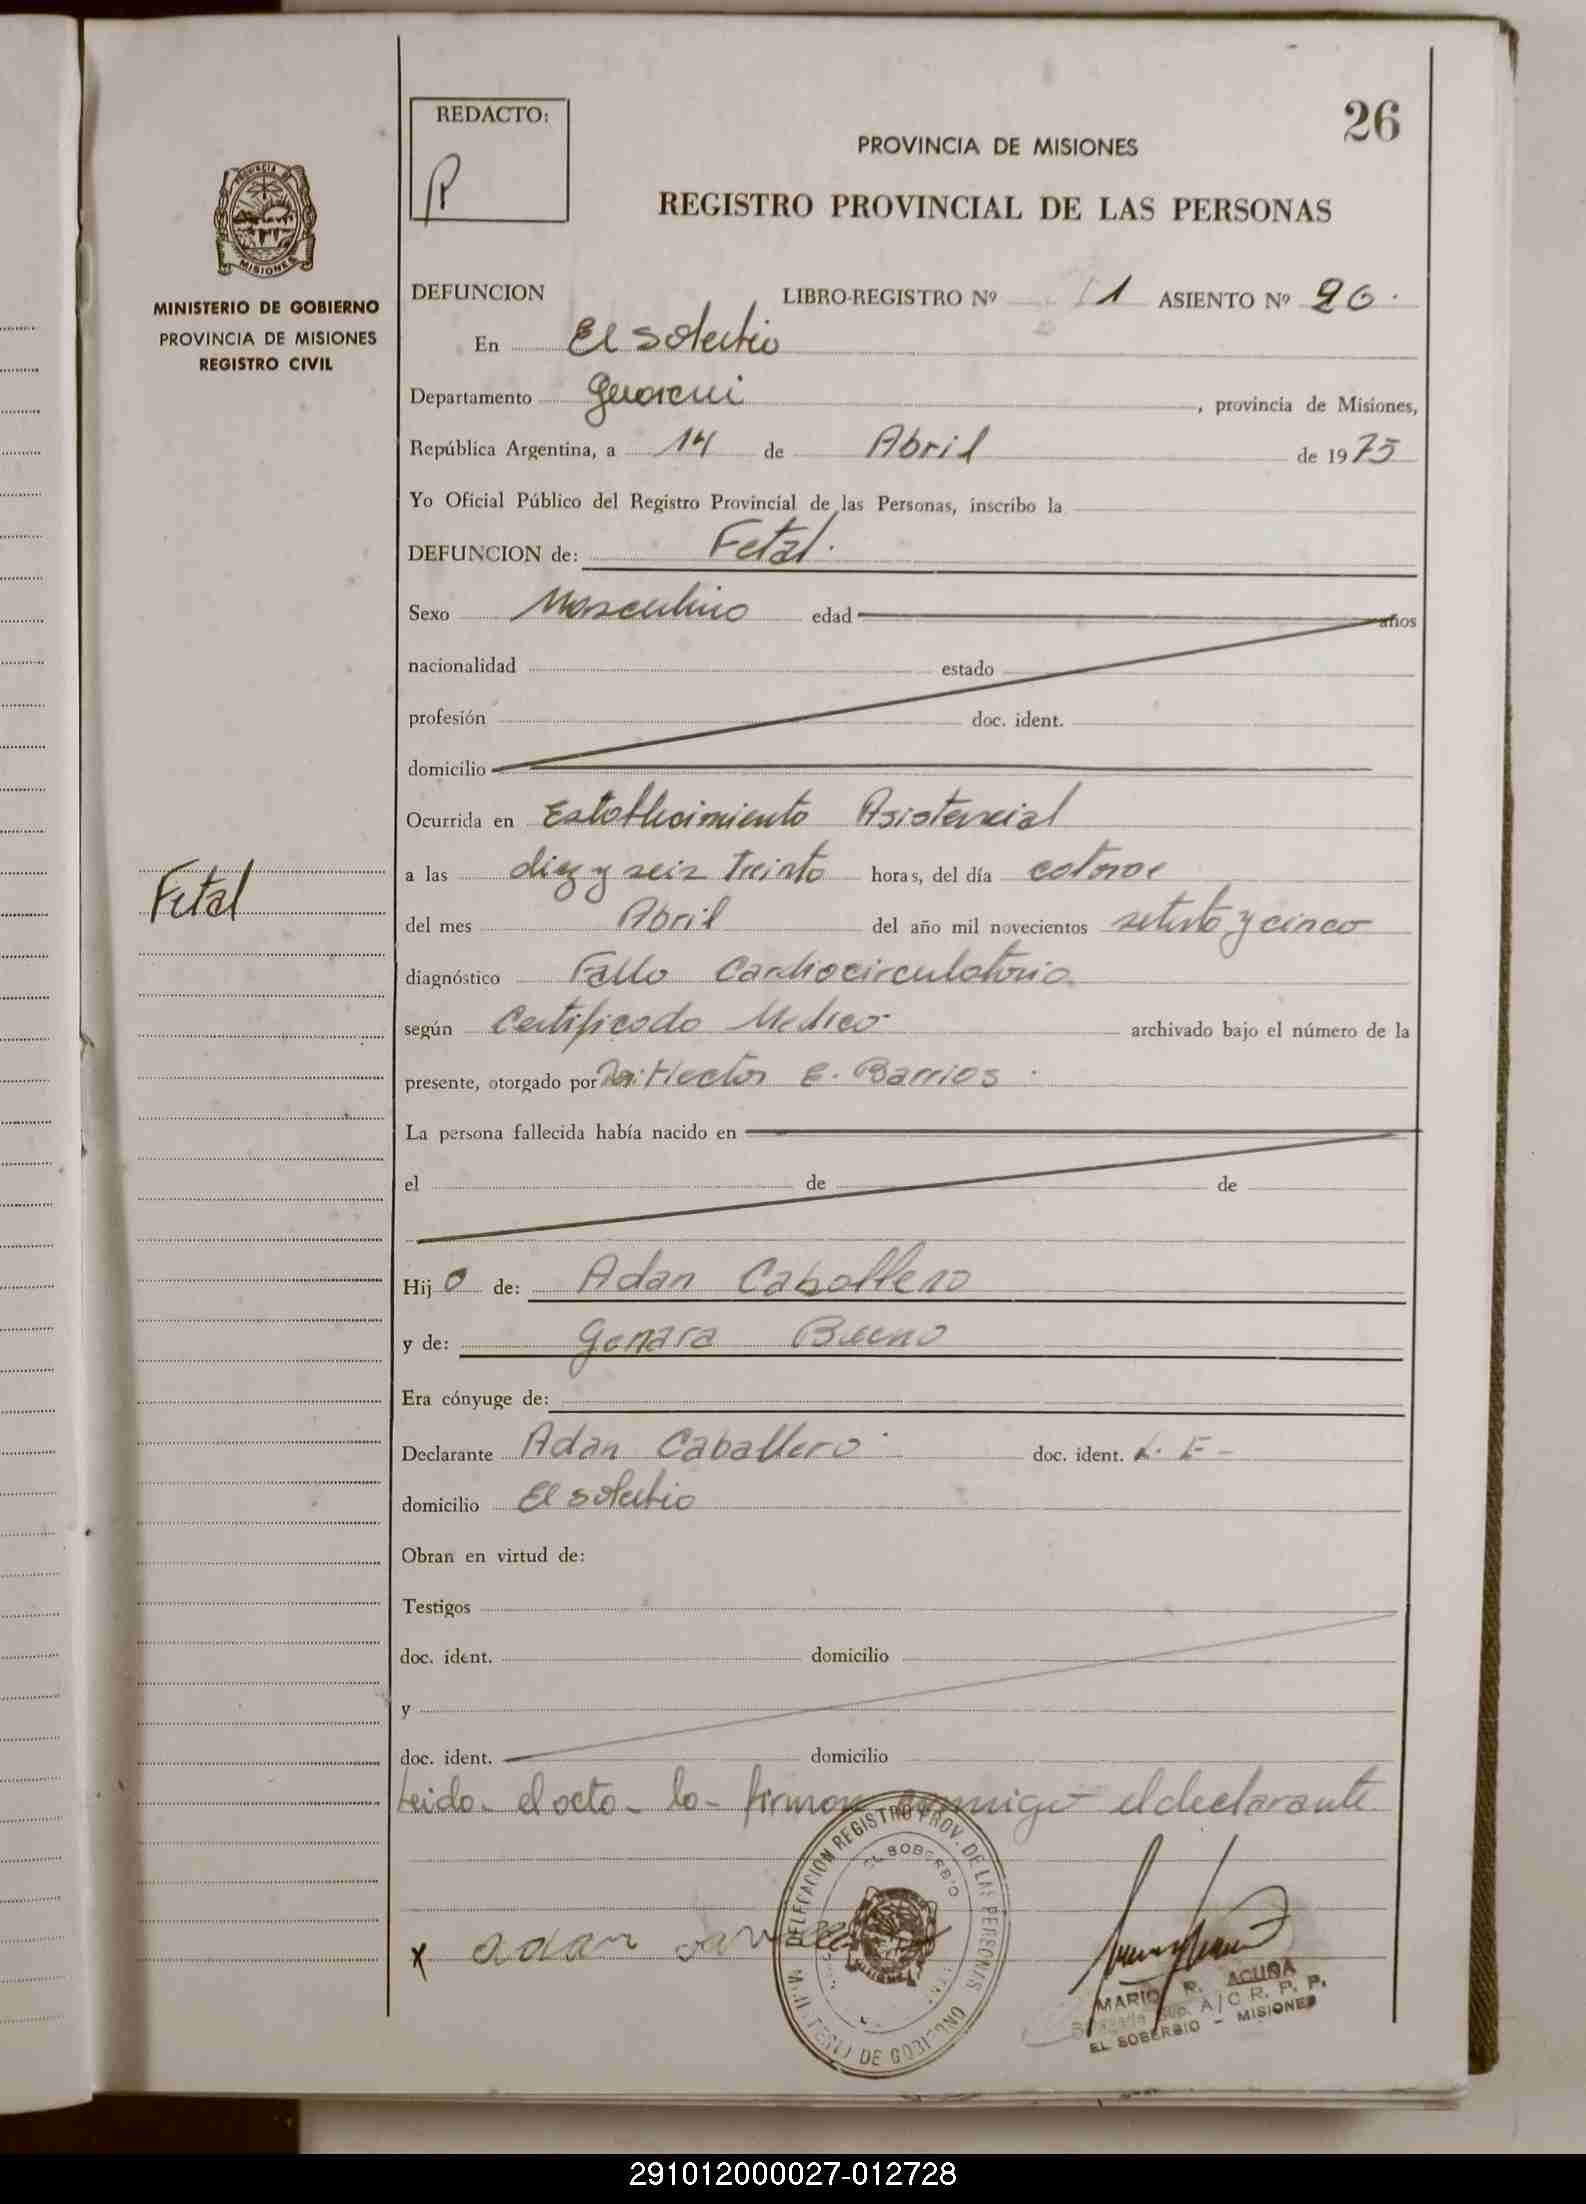 26
REDACTO:
R
PROVINCIA DE MISIONES
REGISTRO PROVINCIAL DE LAS PERSONAS
PROVINCIA DE
MISIONES
MINISTERIO DE GOBIERNO
PROVINCIA DE MISIONES
REGISTRO CIVIL
DEFUNCION LIBRO-REGISTRO Nº 1 ASIENTO Nº 26.
En El Soberbio
Departamento Guarani, provincia de Misiones,
República Argentina, a 14 de Abril de 1975
Yo Oficial Público del Registro Provincial de las Personas, inscribo la
DEFUNCION de: Fetal.
Sexo Masculino edad años
nacionalidad estado
profesión doc. ident.
domicilio
Ocurrida en Establecimiento Asistencial
a las diez y seis treinta horas, del día catorce
Fetal
del mes Abril del año mil novecientos setenta y cinco
diagnóstico Fallo Cardiocirculatorio
según Certificado Medico archivado bajo el número de la
presente, otorgado por Hector E. Barrios.
La persona fallecida había nacido en
el de de
Hijo de: Adan Caballero
y de: Genara Bueno
Era cónyuge de:
Declarante Adan Caballero doc. ident. L. E-
domicilio El Soberbio
Obran en virtud de:
Testigos
doc. ident. domicilio
y
doc. ident. domicilio
Leido- el acta- lo- firman conmigo el declarante
DELEGACION REGISTRO PROV. DE LAS PERSONAS
EL SOBERBIO
MINISTERIO DE GOBIERNO
x adan
MARIO R. ACUÑA
Sup. A/C R. P. P.
EL SOBERBIO - MISIONES
291012000027-012728